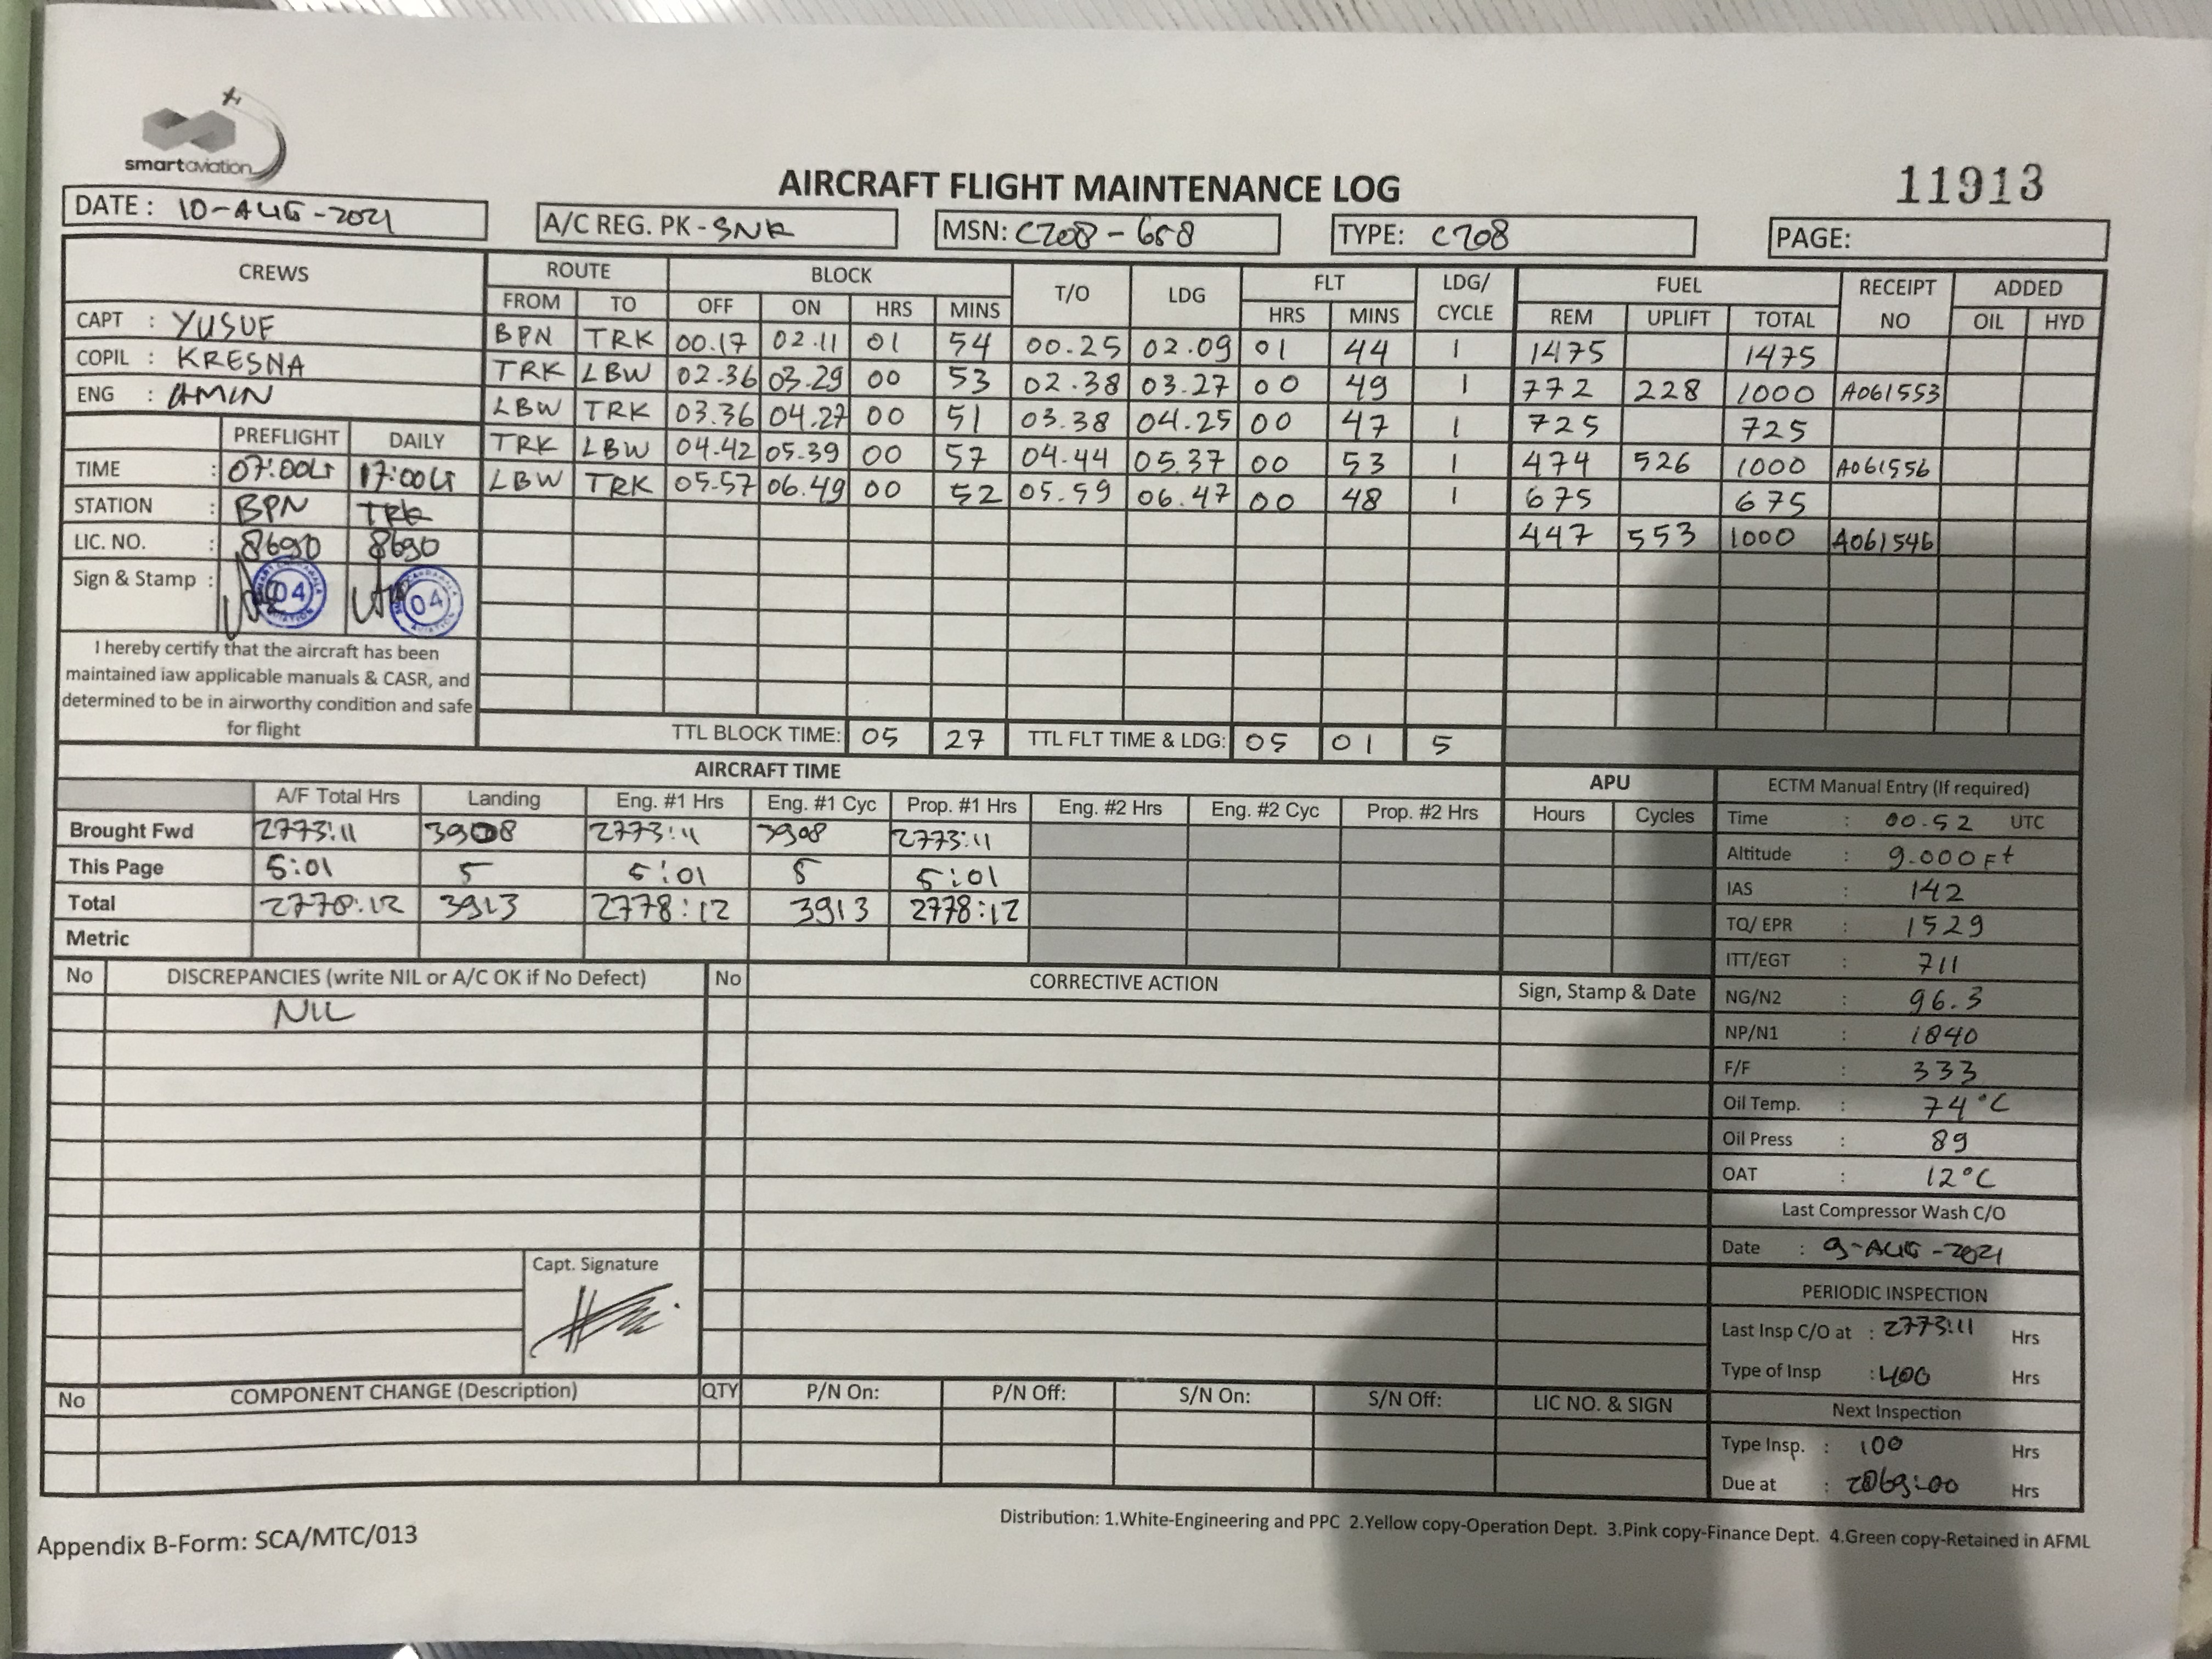 smartaviation
AIRCRAFT FLIGHT MAINTENANCE LOG
11913
DATE : 10-AUG-2021
A/C REG. PK-SNR
MSN: C208-658
TYPE: C208
PAGE:
CREWS ROUTE BLOCK T/O LDG FLT LDG/ CYCLE FUEL RECEIPT NO ADDED
FROM TO OFF ON HRS MINS HRS MINS REM UPLIFT TOTAL OIL HYD
CAPT : YUSUF
COPIL : KRESNA
ENG : AMIN
BPN TRK 00.17 02.11 01 54 00.25 02.09 01 44 1 1475 1475
TRK LBW 02.36 03.29 00 53 02.38 03.27 00 49 1 772 228 1000 A061553
LBW TRK 03.36 04.27 00 51 03.38 04.25 00 47 1 725 725
TRK LBW 04.42 05.39 00 57 04.44 05.37 00 53 1 474 526 1000 A061556
LBW TRK 05.57 06.49 00 52 05.59 06.47 00 48 1 675 675
447 553 1000 A061546
PREFLIGHT DAILY
TIME : 07:00LT 17:00LT
STATION : BPN TRK
LIC. NO. : 8690 8690
Sign & Stamp : 04 04
I hereby certify that the aircraft has been
maintained iaw applicable manuals & CASR, and
determined to be in airworthy condition and safe
for flight
TTL BLOCK TIME: 05 27 TTL FLT TIME & LDG: 05 01 5
AIRCRAFT TIME APU
A/F Total Hrs Landing Eng. #1 Hrs Eng. #1 Cyc Prop. #1 Hrs Eng. #2 Hrs Eng. #2 Cyc Prop. #2 Hrs Hours Cycles
Brought Fwd 2773:11 3908 2773:11 3908 2773:11
This Page 5:01 5 5:01 5 5:01
Total 2778:12 3913 2778:12 3913 2778:12
Metric
ECTM Manual Entry (If required)
Time : 00.52 UTC
Altitude : 9.000 Ft
IAS : 142
TQ/ EPR : 1529
ITT/EGT : 711
NG/N2 : 96.3
NP/N1 : 1840
F/F : 333
Oil Temp. : 74°C
Oil Press : 89
OAT : 12°C
Last Compressor Wash C/O
Date : 9-AUG-2021
PERIODIC INSPECTION
Last Insp C/O at : 2773:11 Hrs
Type of Insp : 400 Hrs
Next Inspection
Type Insp. : 100 Hrs
Due at : 2869:00 Hrs
No DISCREPANCIES (write NIL or A/C OK if No Defect) No CORRECTIVE ACTION Sign, Stamp & Date
NIL
Capt. Signature
No COMPONENT CHANGE (Description) QTY P/N On: P/N Off: S/N On: S/N Off: LIC NO. & SIGN
Distribution: 1.White-Engineering and PPC 2.Yellow copy-Operation Dept. 3.Pink copy-Finance Dept. 4.Green copy-Retained in AFML
Appendix B-Form: SCA/MTC/013